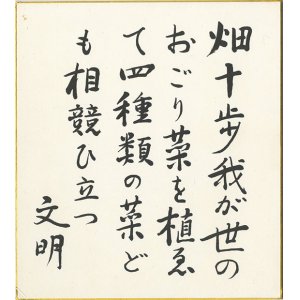 畑十歩我が世の
おごり菜を植ゑ
て四種類の菜ど
も相競ひ立つ
文明